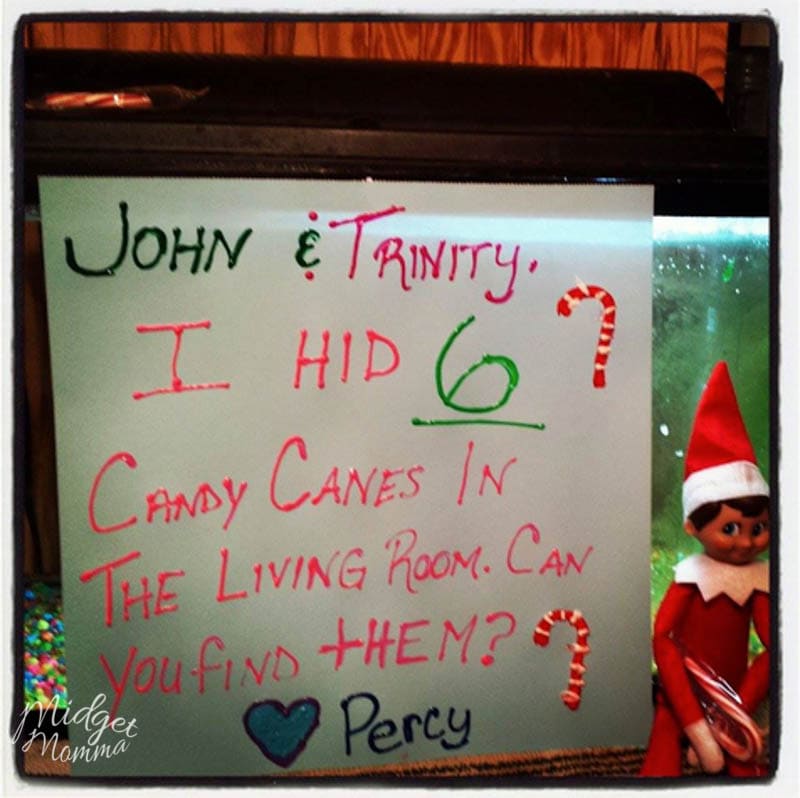 JOHN & TRINITY.
I HID 6
CANDY CANES IN
THE LIVING ROOM. CAN
YOU FIND THEM?
Percy
Midget
Momma